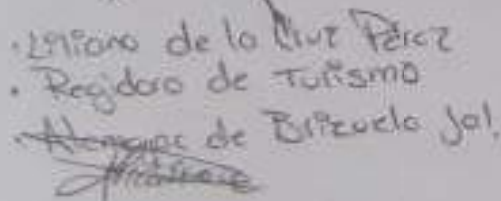 · Liliana de la Cruz Pérez
· Regidora de Turismo
· Atemajac de Brizuela Jal.